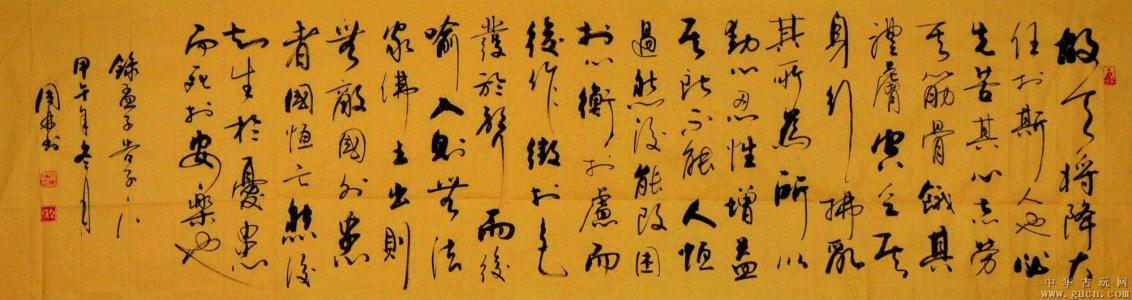 故天将降大
任於斯人也必
先苦其心志劳
其筋骨餓其
體膚空乏其
身行拂亂
其所為所以
動心忍性增益
其所不能人恒
過然後能改困
於心衡於慮而
後作徵於色
發於聲而後
喻入則無法
家佛士出則
無敵國外患
者國恒亡然後
知生於憂患
而死於安樂也
錄孟子告子下
甲午年冬月
周书
中华古玩网
www.gucn.com